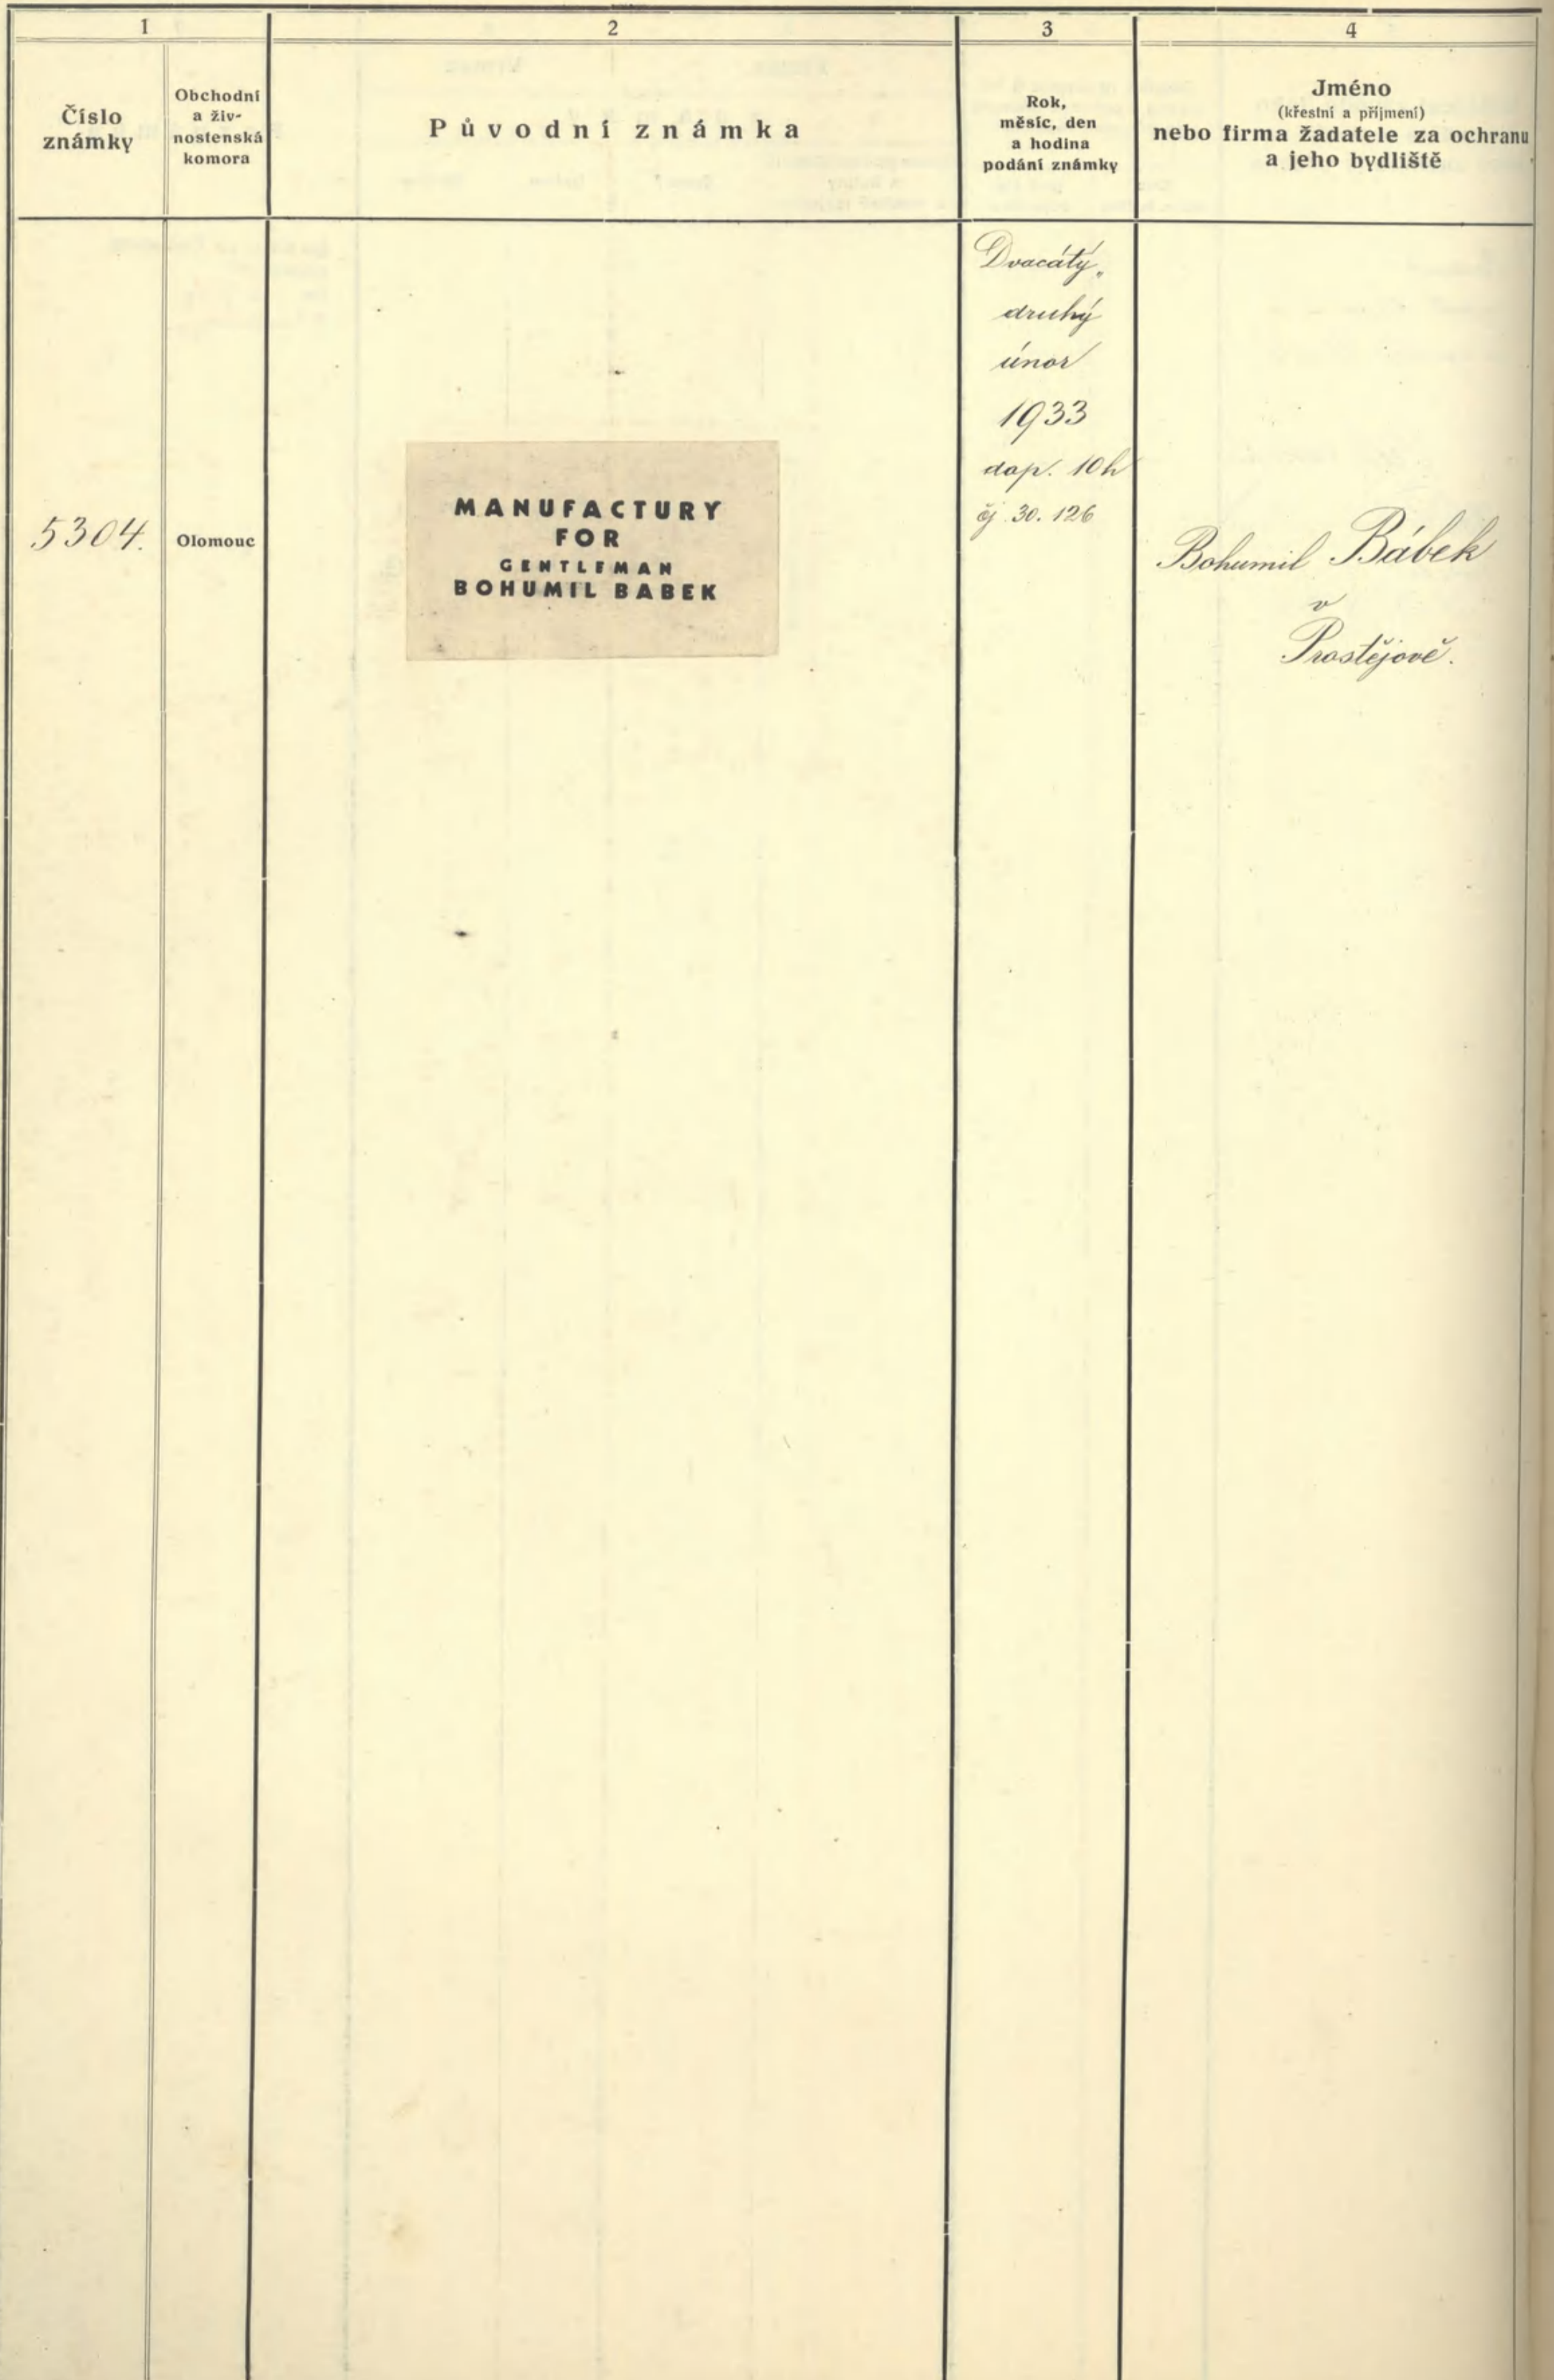 1
2
3
4
Číslo
známky
Obchodní
a živ-
nostenská
komora
Původní známka
Rok,
měsíc, den
a hodina
podání známky
Jméno
(křestní a příjmení)
nebo firma žadatele za ochranu
a jeho bydliště
5304.
Olomouc
MANUFACTURY
FOR
GENTLEMAN
BOHUMIL BABEK
Dvacátý
druhý
únor
1933
dop. 10h
čj. 30.126
Bohumil Bábek
v
Prostějově.